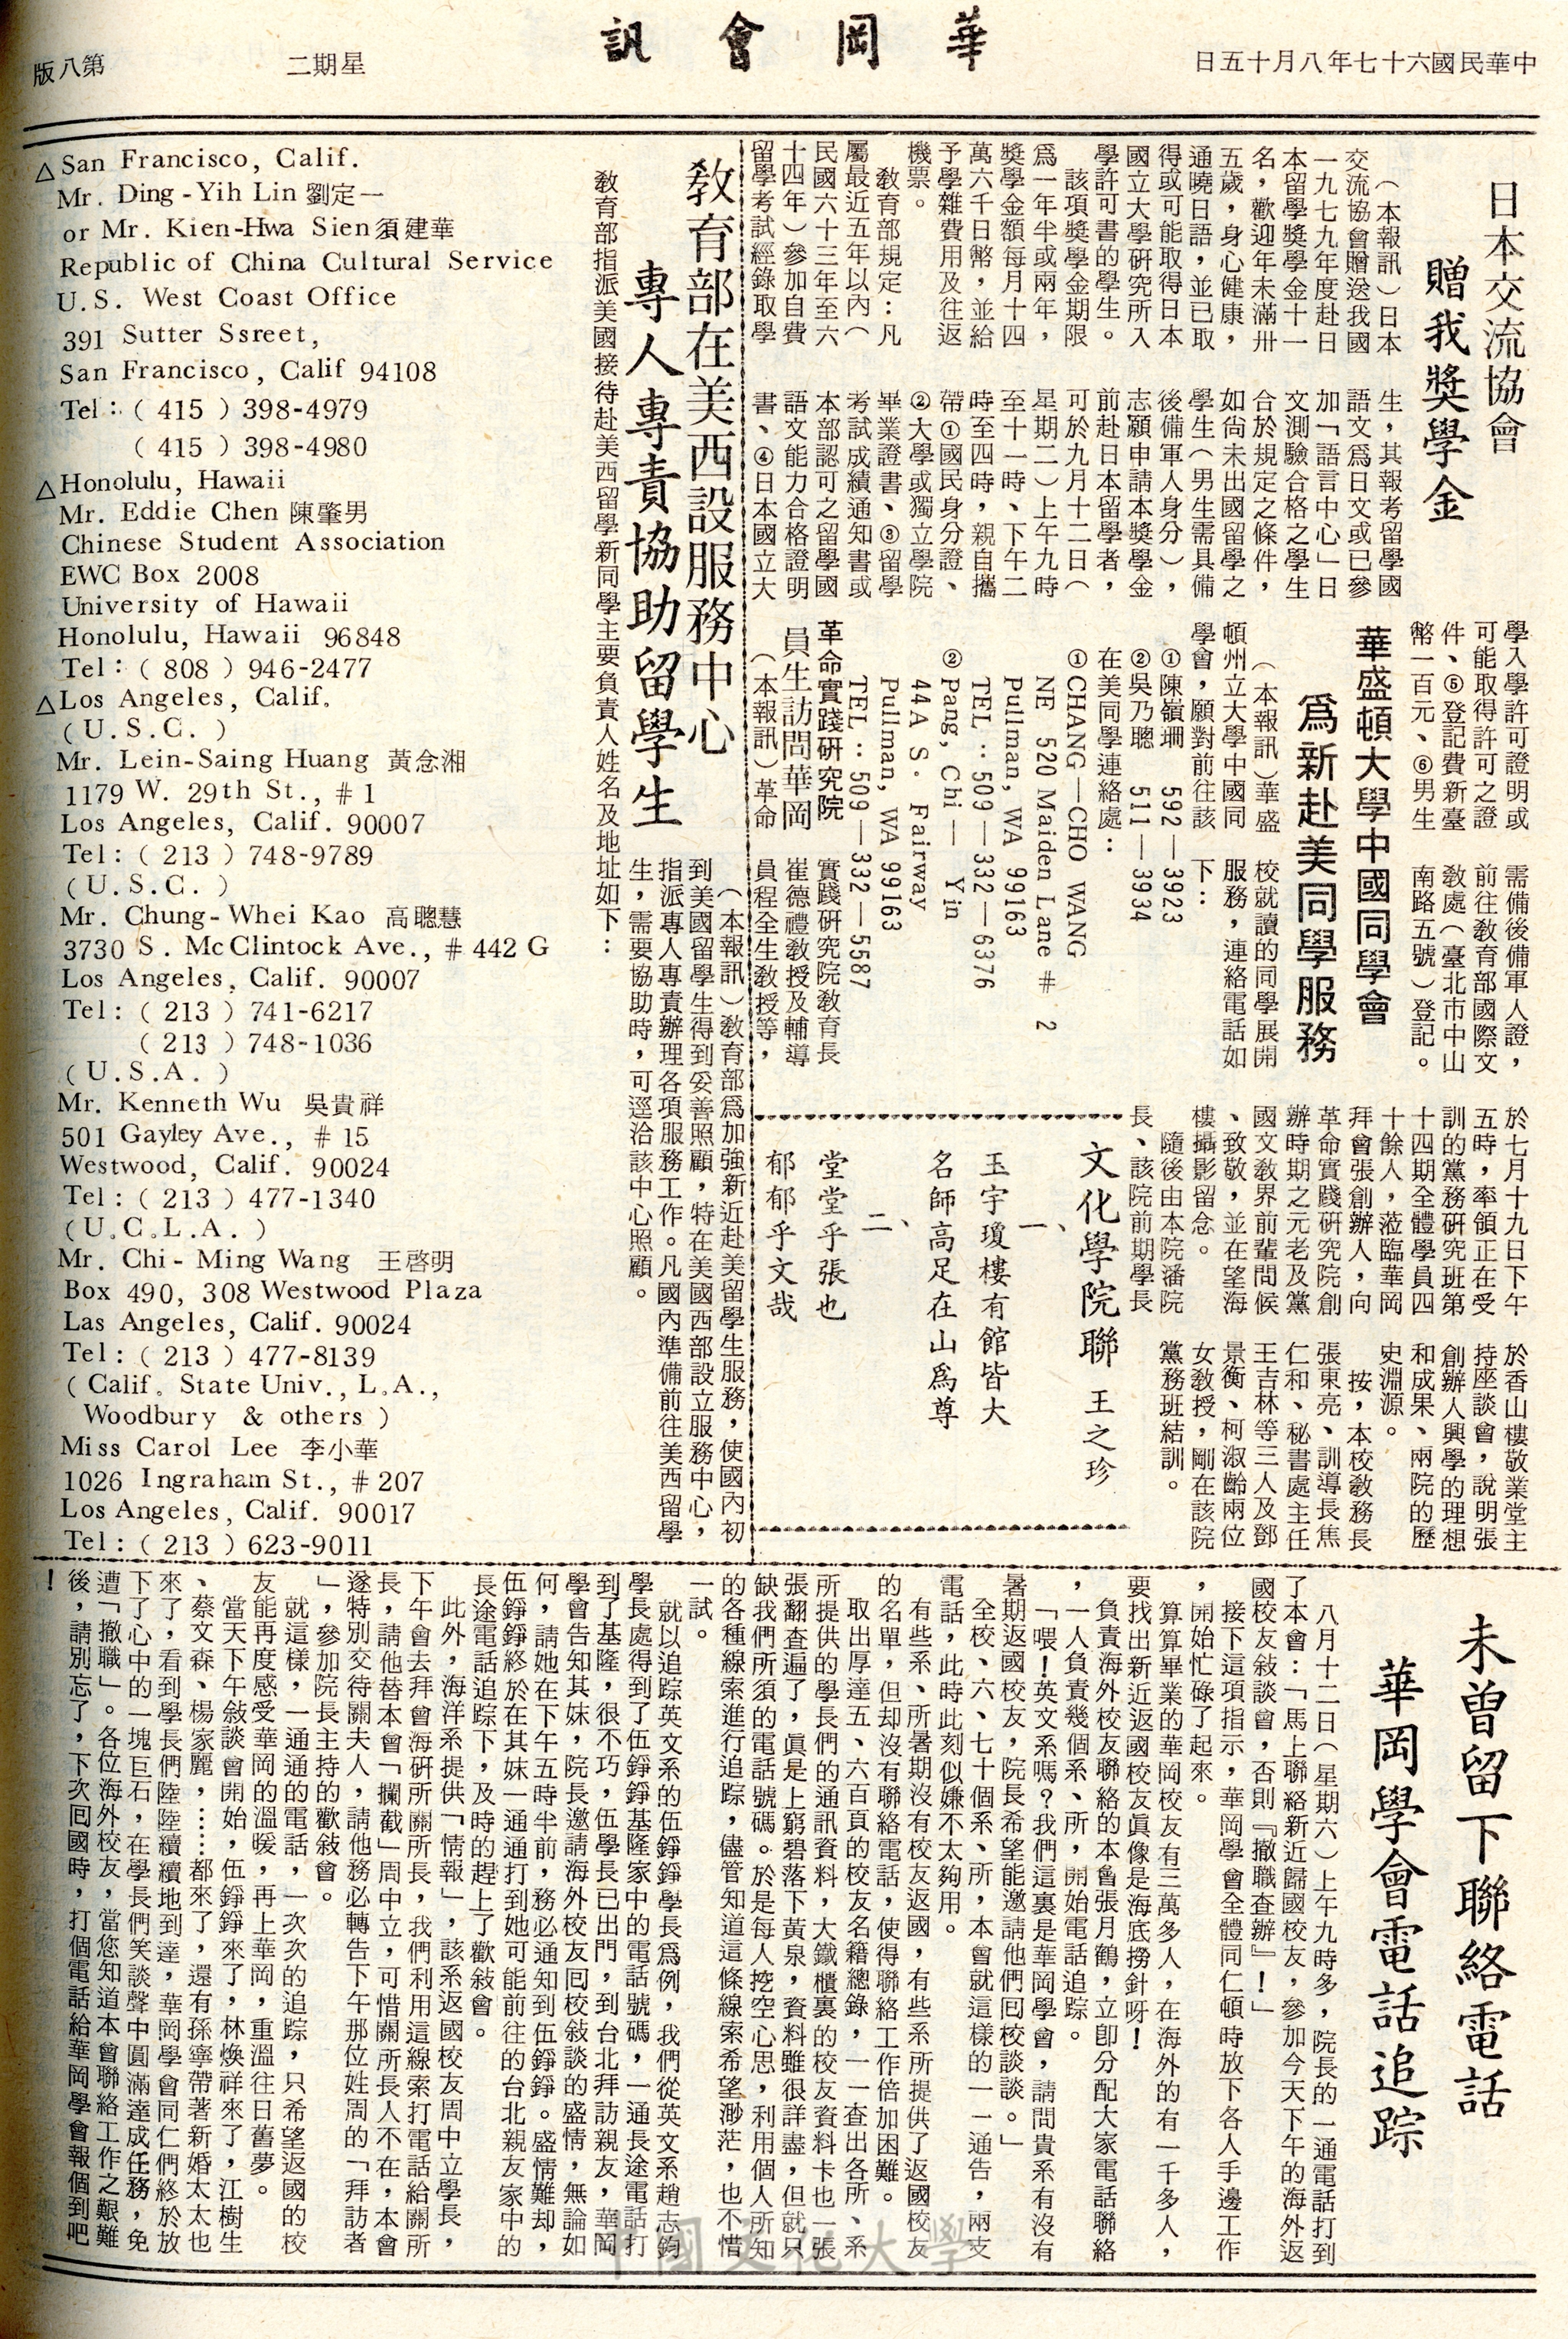 中華民國六十七年八月十五日
華岡會訊
星期二
第八版
日本交流協會
贈我獎學金
（本報訊）日本
交流協會贈送我國
一九七九年度赴日
本留學獎學金十一
名，歡迎年未滿卅
五歲，身心健康，
通曉日語，並已取
得或可能取得日本
國立大學研究所入
學許可書的學生。
該項獎學金期限
爲一年半或兩年，
獎學金額每月十四
萬六千日幣，並給
予學雜費用及往返
機票。
教育部規定：凡
屬最近五年以內（
民國六十三年至六
十四年）參加自費
留學考試經錄取學
生，其報考留學國
語文爲日文或已參
加「語言中心」日
文測驗合格之學生
合於規定之條件，
如尙未出國留學之
學生（男生需具備
後備軍人身分），
志願申請本獎學金
前赴日本留學者，
可於九月十二日（
星期二）上午九時
至十一時、下午二
時至四時，親自攜
帶①國民身分證、
②大學或獨立學院
畢業證書、③留學
考試成績通知書或
本部認可之留學國
語文能力合格證明
書、④日本國立大
學入學許可證明或
可能取得許可之證
件、⑤登記費新臺
幣一百元、⑥男生
需備後備軍人證，
前往教育部國際文
教處（臺北市中山
南路五號）登記。
華盛頓大學中國同學會
爲新赴美同學服務
（本報訊）華盛
頓州立大學中國同
學會，願對前往該
校就讀的同學展開
服務，連絡電話如
下：
①陳嶺珊　592—3923
②吳乃聰　511—3934
在美同學連絡處：
①CHANG—CHO WANG
NE 520 Maiden Lane # 2
Pullman, WA 99163
TEL：509—332—6376
②Pang, Chi — Yin
44A S. Fairway
Pullman, WA 99163
TEL：509—332—5587
革命實踐研究院
員生訪問華岡
（本報訊）革命
實踐研究院教育長
崔德禮教授及輔導
員程全生教授等，
於七月十九日下午
五時，率領正在受
訓的黨務研究班第
十四期全體學員四
十餘人，蒞臨華岡
拜會張創辦人，向
革命實踐研究院創
辦時期之元老及黨
國文教界前輩問候
、致敬，並在望海
樓攝影留念。
隨後由本院潘院
長、該院前期學長
於香山樓敬業堂主
持座談會，說明張
創辦人興學的理想
和成果、兩院的歷
史淵源。
按，本校教務長
張東亮、訓導長焦
仁和、秘書處主任
王吉林等三人及鄧
景衡、柯淑齡兩位
女教授，剛在該院
黨務班結訓。
文化學院聯　王之珍
一、
玉宇瓊樓有館皆大
名師高足在山爲尊
二、
堂堂乎張也
郁郁乎文哉
教育部在美西設服務中心
專人專責協助留學生
（本報訊）教育部爲加強新近赴美留學生服務，使國內初
到美國留學生得到妥善照顧，特在美國西部設立服務中心，
指派專人專責辦理各項服務工作。凡國內準備前往美西留學
生，需要協助時，可逕洽該中心照顧。
教育部指派美國接待赴美西留學新同學主要負責人姓名及地址如下：
△San Francisco, Calif.
Mr. Ding-Yih Lin 劉定一
or Mr. Kien-Hwa Sien須建華
Republic of China Cultural Service
U.S. West Coast Office
391 Sutter Ssreet,
San Francisco, Calif 94108
Tel：( 415 ) 398-4979
( 415 ) 398-4980
△Honolulu, Hawaii
Mr. Eddie Chen 陳肇男
Chinese Student Association
EWC Box 2008
University of Hawaii
Honolulu, Hawaii 96848
Tel：( 808 ) 946-2477
△Los Angeles, Calif.
( U.S.C. )
Mr. Lein-Saing Huang 黃念湘
1179 W. 29th St., # 1
Los Angeles, Calif. 90007
Tel：( 213 ) 748-9789
( U.S.C. )
Mr. Chung-Whei Kao 高聰慧
3730 S. McClintock Ave., # 442 G
Los Angeles, Calif. 90007
Tel：( 213 ) 741-6217
( 213 ) 748-1036
( U.S.A. )
Mr. Kenneth Wu 吳貴祥
501 Gayley Ave., # 15
Westwood, Calif. 90024
Tel：( 213 ) 477-1340
( U.C.L.A. )
Mr. Chi-Ming Wang 王啓明
Box 490, 308 Westwood Plaza
Las Angeles, Calif. 90024
Tel：( 213 ) 477-8139
( Calif. State Univ., L.A.,
Woodbury & others )
Miss Carol Lee 李小華
1026 Ingraham St., # 207
Los Angeles, Calif. 90017
Tel：( 213 ) 623-9011
未曾留下聯絡電話
華岡學會電話追踪
八月十二日（星期六）上午九時多，院長的一通電話打到
了本會：「馬上聯絡新近歸國校友，參加今天下午的海外返
國校友敍談會，否則『撤職查辦』！」
接下這項指示，華岡學會全體同仁頓時放下各人手邊工作
，開始忙碌了起來。
算算畢業的華岡校友有三萬多人，在海外的有一千多人，
要找出新近返國校友眞像是海底撈針呀！
負責海外校友聯絡的本會張月鶴，立卽分配大家電話聯絡
，一人負責幾個系、所，開始電話追踪。
「喂！英文系嗎？我們這裏是華岡學會，請問貴系有沒有
暑期返國校友，院長希望能邀請他們囘校談談。」
全校、六、七十個系、所，本會就這樣的一一通告，兩支
電話，此時此刻似嫌不太夠用。
有些系、所暑期沒有校友返國，有些系所提供了返國校友
的名單，但却沒有聯絡電話，使得聯絡工作倍加困難。
取出厚達五、六百頁的校友名籍總錄，一一查出各所、系
所提供的學長們的通訊資料，大鐵櫃裏的校友資料卡也一張
張翻查遍了，眞是上窮碧落下黃泉，資料雖很詳盡，但就只
缺我們所須的電話號碼。於是每人挖空心思，利用個人所知
的各種線索進行追踪，儘管知道這條線索希望渺茫，也不惜
一試。
就以追踪英文系的伍錚錚學長爲例，我們從英文系趙志鈞
學長處得到了伍錚錚基隆家中的電話號碼，一通長途電話打
到了基隆，很不巧，伍學長已出門，到台北拜訪親友，華岡
學會告知其妹，院長邀請海外校友囘校敍談的盛情，無論如
何，請她在下午五時半前，務必通知到伍錚錚。盛情難却，
伍錚錚終於在其妹一通通打到她可能前往的台北親友家中的
長途電話追踪下，及時的趕上了歡敍會。
此外，海洋系提供「情報」，該系返國校友周中立學長，
下午會去拜會海研所關所長，我們利用這線索打電話給關所
長，請他替本會「攔截」周中立，可惜關所長人不在，本會
遂特別交待關夫人，請他務必轉告下午那位姓周的「拜訪者
」，參加院長主持的歡敍會。
就這樣，一通通的電話，一次次的追踪，只希望返國的校
友能再度感受華岡的溫暖，再上華岡，重溫往日舊夢。
當天下午敍談會開始，伍錚錚來了，林煥祥來了，江樹生
、蔡文森、楊家麗，……都來了，還有孫寧帶著新婚太太也
來了，看到學長們陸陸續續地到達，華岡學會同仁們終於放
下了心中的一塊巨石，在學長們笑談聲中圓滿達成任務，免
遭「撤職」。各位海外校友，當您知道本會聯絡工作之艱難
後，請別忘了，下次囘國時，打個電話給華岡學會報個到吧
！
中國文化大學